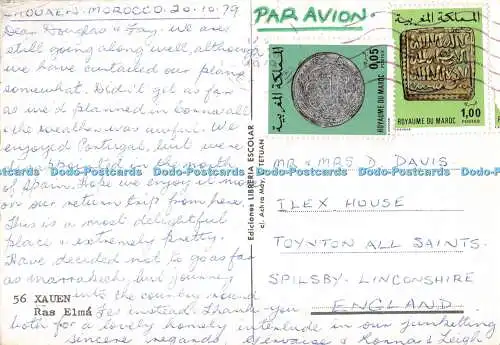 CHOUAEN. MOROCCO 20.10.79
Dear Douglas & Fay. We are
still going along well, although
we have curtailed our plans
somewhat. Didn't get as far
as we'd planned in
the weather was awful. We
enjoyed Portugal, but were
in the north
of Spain. Hope we enjoy it more
on our return trip from here.
This is a most delightful
place & extremely pretty.
Have decided not to go as far
as Marrakech, but journey
into the country round
Fes instead. Thank you
both for a lovely homely interlude in our junketting
sincere regards Gervaise & Leigh
56 XAUEN
Ras Elmá
Ediciones LIBRERIA ESCOLAR
TETUAN
PAR AVION
المملكة المغربية
0,05
POSTES
ROYAUME DU MAROC
المملكة المغربية
ROYAUME DU MAROC
1,00
POSTES
MR & MRS D. DAVIS
ILEX HOUSE
TOYNTON ALL SAINTS.
SPILSBY. LINCONSHIRE
ENGLAND.
www.delcampe.net Postcards